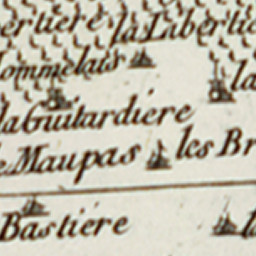 ertiere la Liberti
ommelais la
la Guitardiére
Maupas les Br
Bastiére